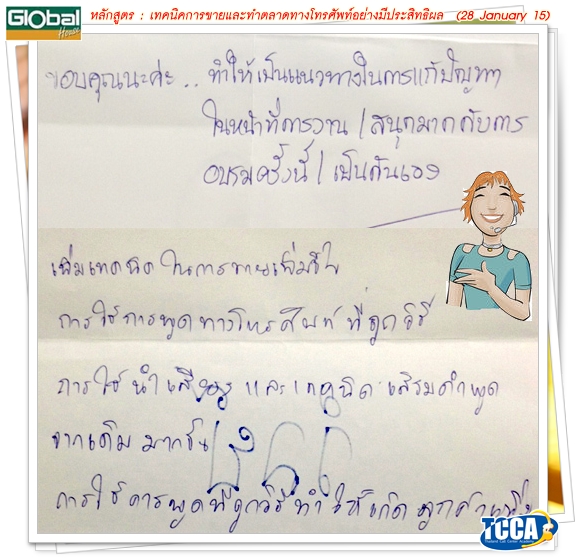 Global House
หลักสูตร : เทคนิคการขายและทำตลาดทางโทรศัพท์อย่างมีประสิทธิผล (28 January 15)
ขอบคุณนะค่ะ... ทำให้เป็นแนวทางในการแก้ปัญหา
ในหน้าที่การงาน / สนุกมากกับการ
อบรมครั้งนี้ / เป็นกันเอง
เพิ่มเทคนิคในการขายเพิ่มขึ้น
การใช้การพูดทางโทรศัพท์ ที่ถูกวิธี
การใช้น้ำเสียง และเทคนิค เสริมคำพูด
จากเดิม มากขึ้น
การใช้การพูดที่ถูกวิธี ทำให้เกิด ลูกค้า
TCCA
Thailand Call Center Academy